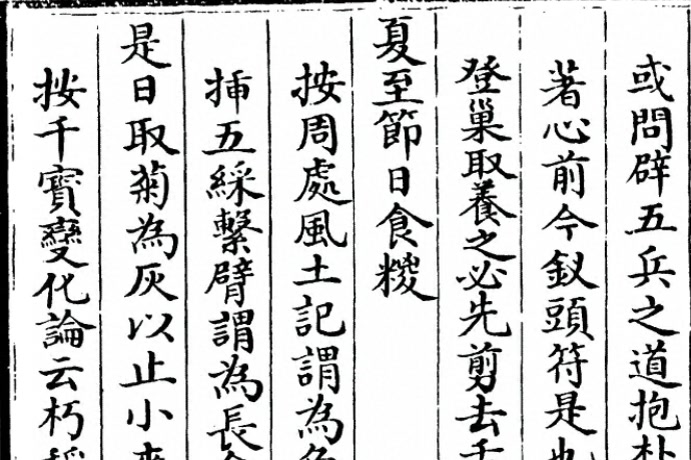 或問辟五兵之道抱朴
著心前今釵頭符是也
登巢取養之必先剪去
夏至節日食糉
按周處風土記謂為
揷五綵繫臂謂為長
是日取菊為灰以止小
按千寳變化論云朽